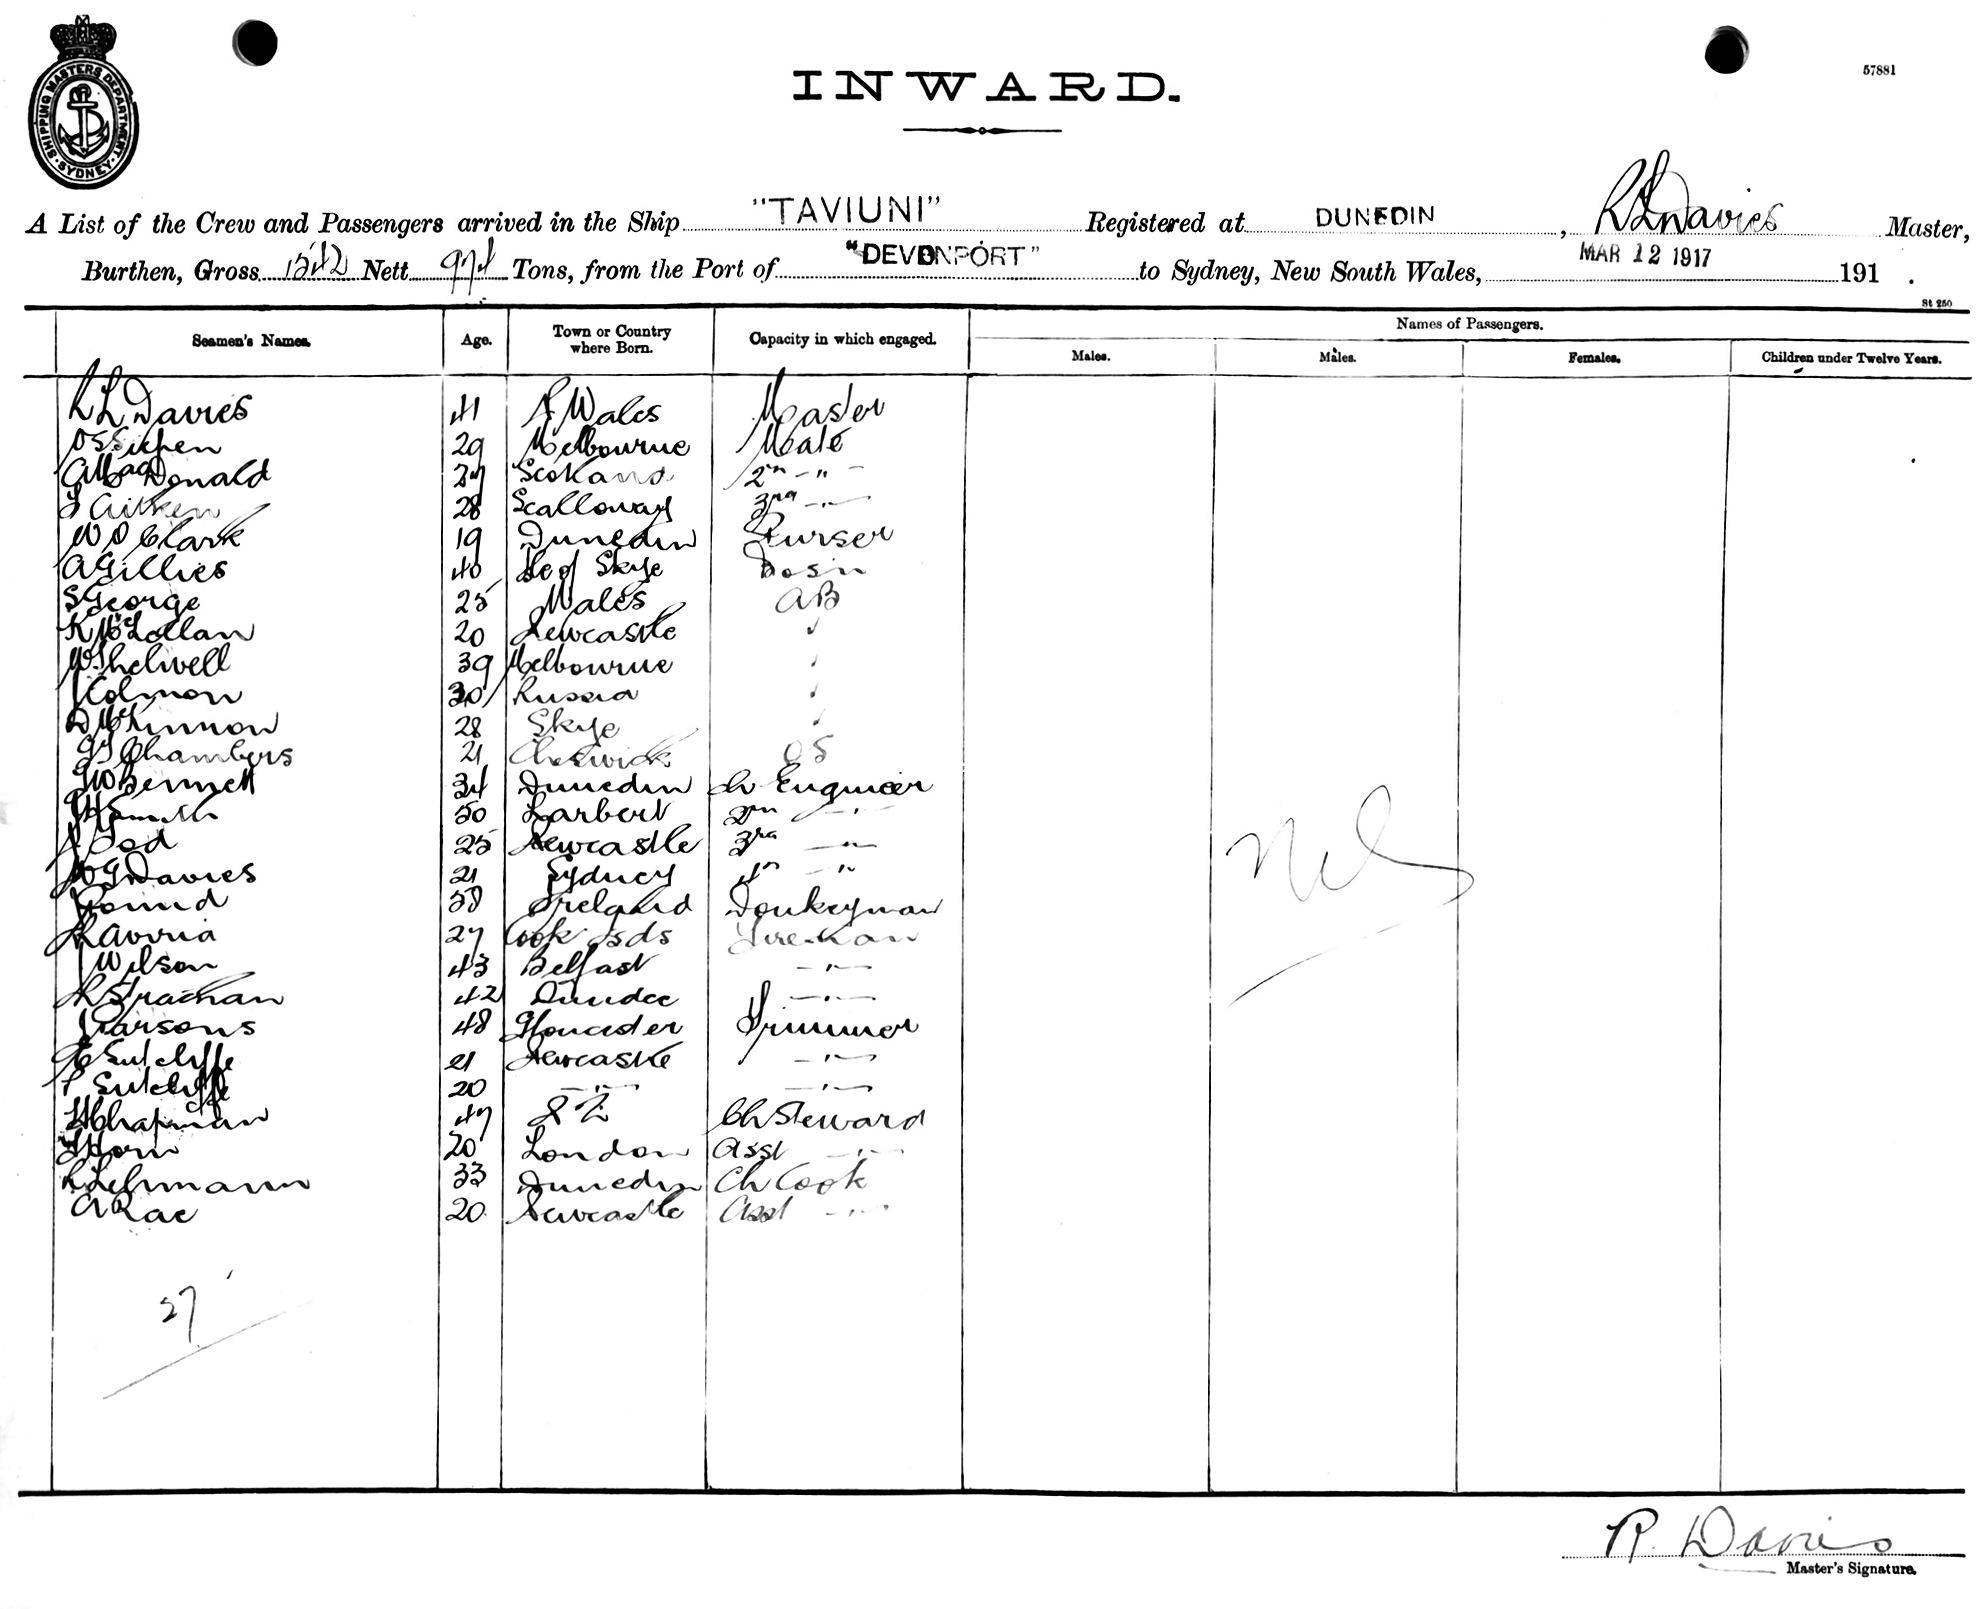 SHIPPING MASTERS DEPARTMENT. SYDNEY
57881
INWARD.
A List of the Crew and Passengers arrived in the Ship "TAVIUNI" Registered at DUNEDIN, R L Davies Master,
Burthen, Gross 1542 Nett Tons, from the Port of "DEVONPORT" to Sydney, New South Wales, MAR 12 1917 191 .
St 250
Seamen's Names. Age. Town or Country where Born. Capacity in which engaged. Names of Passengers.
Males. Males. Females. Children under Twelve Years.
R L Davies 41 S Wales Master
29 Melbourne Mate
A MacDonald 27 Scotland 2nd - " -
L Aitken 28 Scalloway 3rd - " -
W D Clark 19 Dunedin Purser
A Gillies 40 Ile of Skye Bosn
S George 25 Wales AB
K McLellan 20 Newcastle "
W Shelwell 39 Melbourne "
J Colmon 30 Russia "
D McKinnon 28 Skye "
Chambers 21 Cheswick OS
G W Bennett 34 Dunedin Ch Engineer
J H Smith 50 Larbert 2nd - " -
J Tod 25 Newcastle 3rd - " -
W G Davies 21 Sydney 4th - " -
58 Ireland Donkeyman
27 Cook Isds Fireman
J Wilson 43 Belfast - " -
R Strachan 42 Dundee - " -
J Parsons 48 Gloucester Trimmer
Sutcliffe 21 Newcastle - " -
P Sutcliffe 20 - " - - " -
H Chapman 47 N Z Ch Steward
Horn 20 London Asst - " -
R Lehmann 33 Dunedin Ch Cook
A Rae 20 Newcastle Asst - " -
Nil
27
R. Davies
Master's Signature.